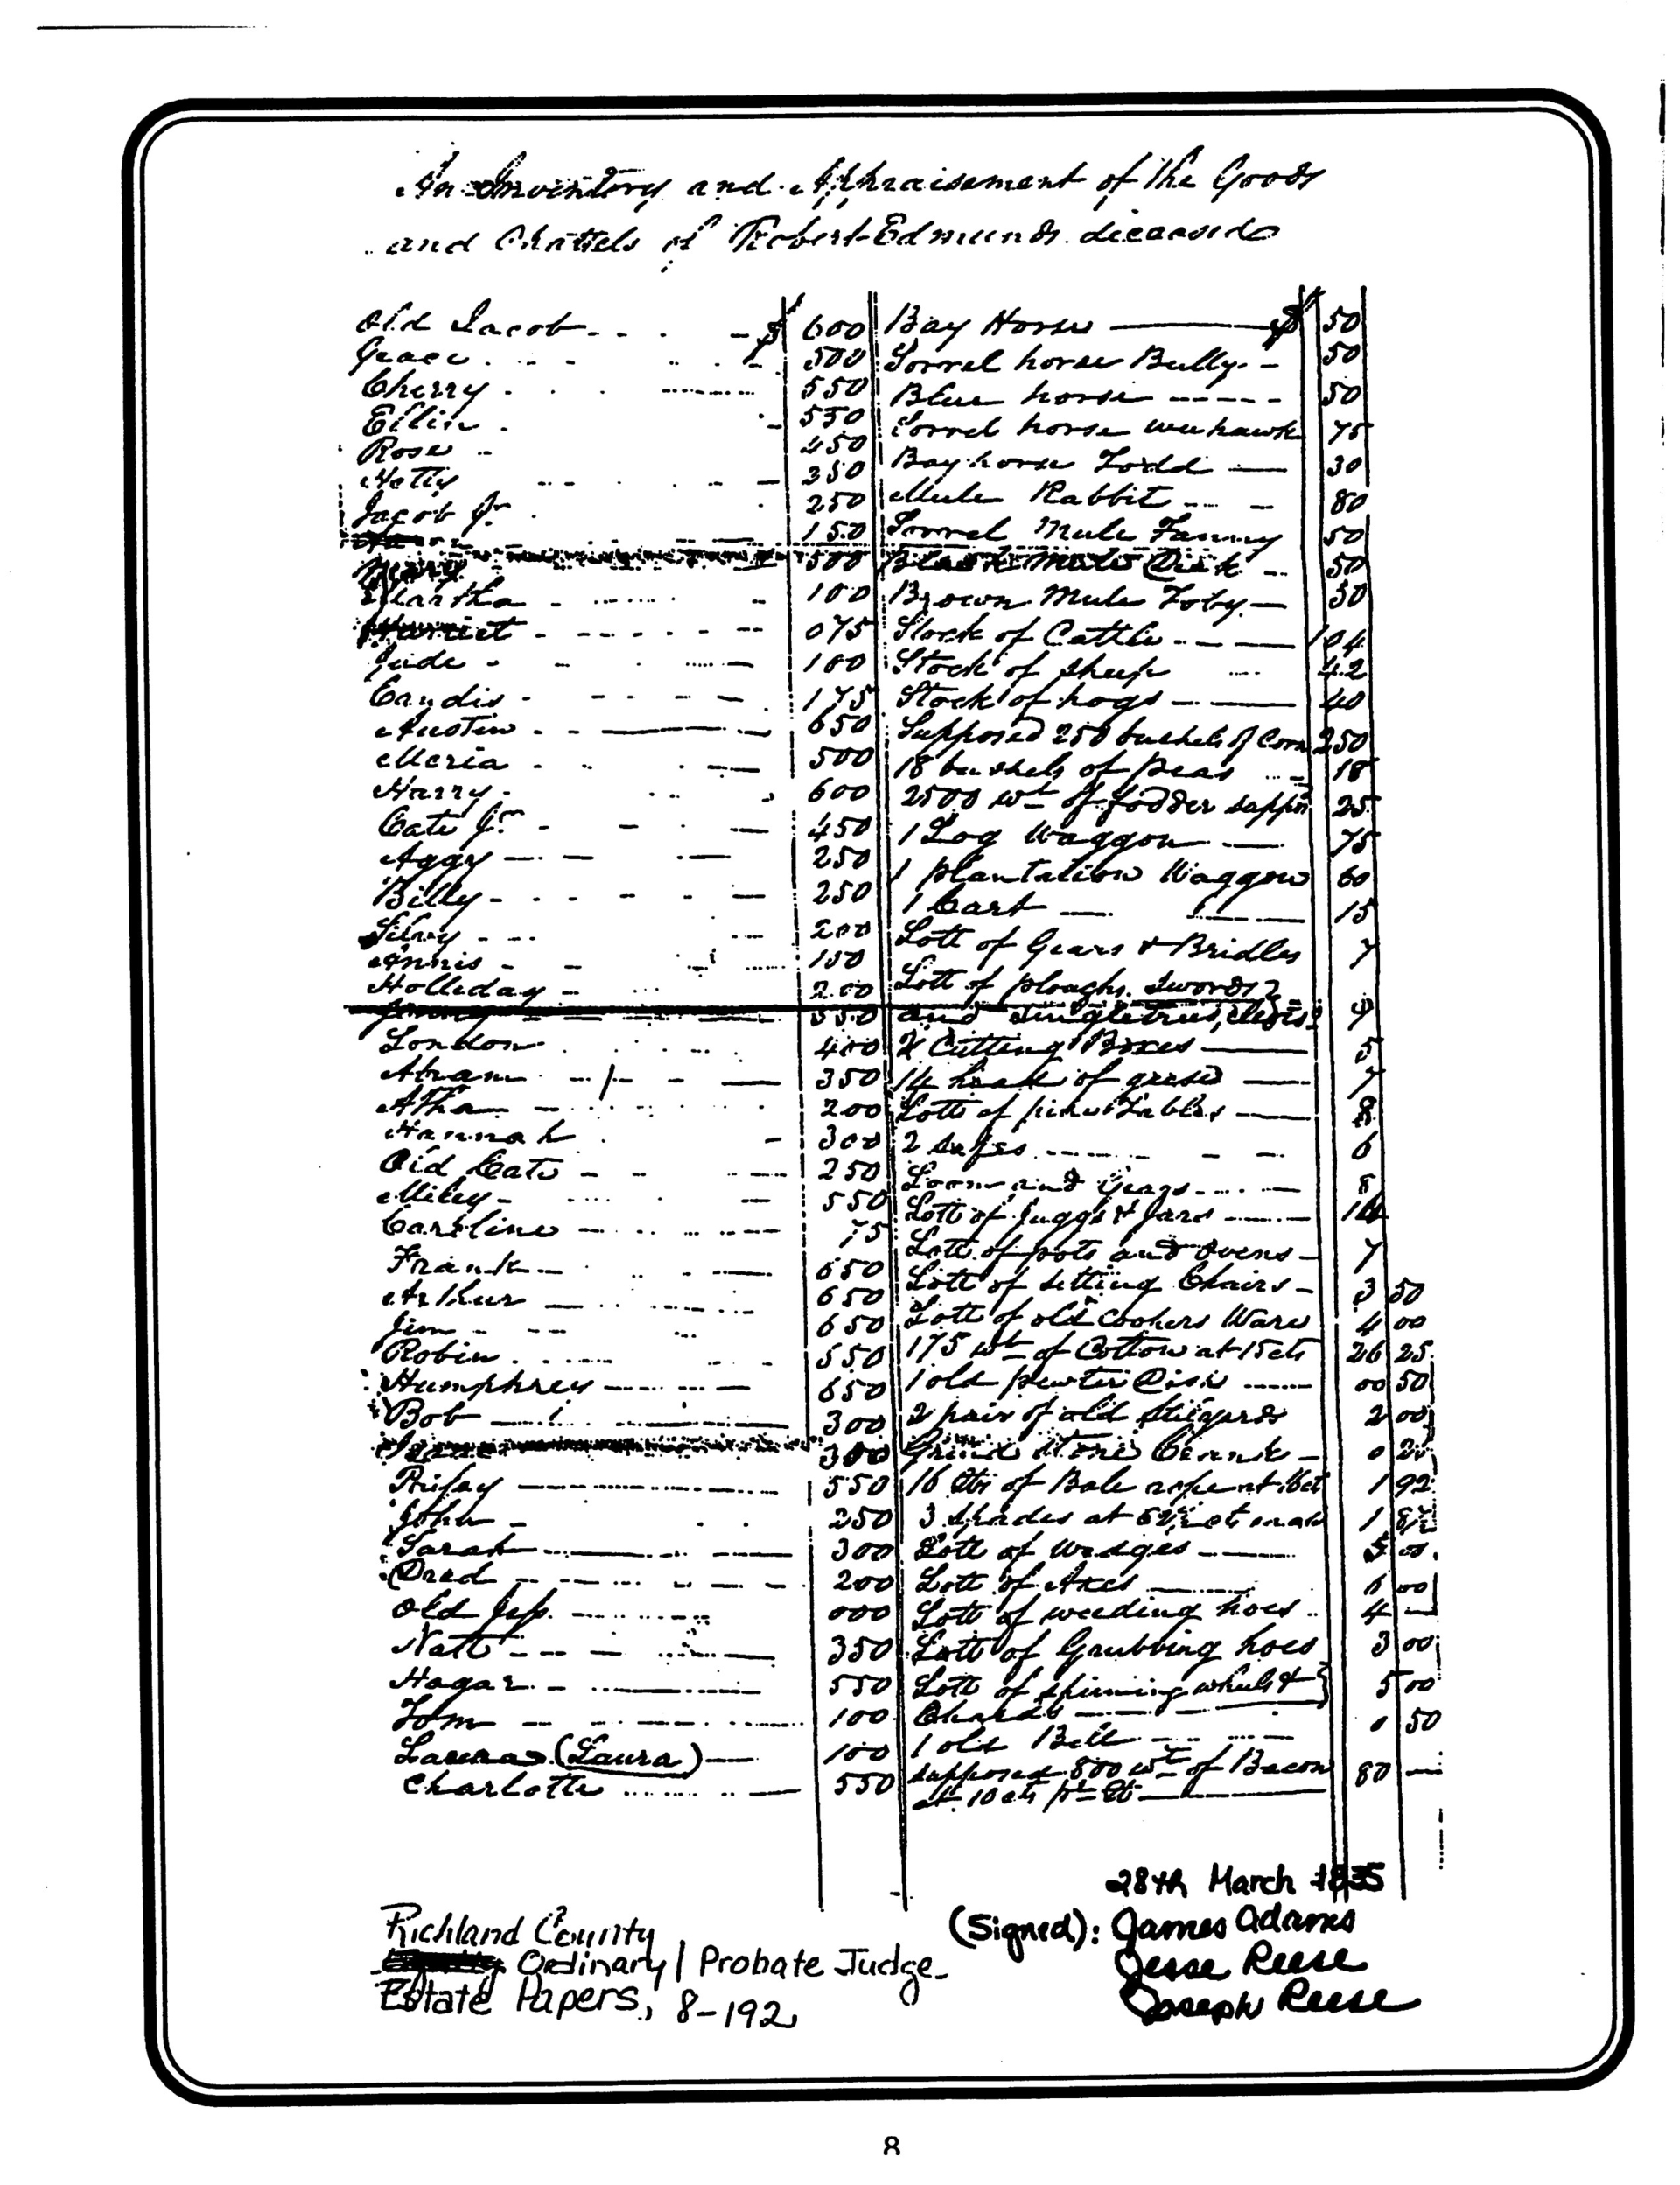 An Inventory and Appraisement of the Goods
and Chattels of Robert Edmunds deceased
Old Jacob $ 600 Bay Horse $ 50
Grace 500 Sorrel horse Bully 50
Cherry 550 Blue horse 50
Ellin 550 Sorrel horse 75
Rose 450 Bay horse Todd 30
Hetty 350 Mule Rabbit 80
Jacob Jr 250 Sorrel Mule Fanny 50
150
500 Black Mule Dick 50
Martha 100 Brown Mule Toby 50
Harriet 075 Stock of Cattle 104
Jude 100 Stock of sheep 42
Candis 175 Stock of hogs 40
Austin 650 Supposed 250 bushels of Corn 250
Meria 500 18 bushels of peas 18
Harry 600 2500 wt of fodder 25
Cate Jr 450 1 Log Waggon 75
Aggy 250 1 plantation Waggon 60
Billy 250 1 Cart 15
Silvy 200 Lott of Gears & Bridles 7
Annis 150 Lott of ploughs
Holliday 200 and
550
London 400 2 Cutting Boxes 5
Abram 350 14 head of geese 7
200 Lott of Tables 8
Hannah 300 2 safes 6
Old Cate 250 Loom and Gears 8
Miley 550 Lott of Juggs & Jars
Caroline 75 Lott of pots and ovens 7
Frank 650 Lott of setting Chairs 3 50
Arthur 650 Lott of old Cookers Ware 4 00
Jim 650 175 wt of Cotton at 15 cts 26 25
Robin 550 1 old pewter Dish 00 50
Humphrey 650 2 pair of old 2 00
Bob 300 Grind stone Crank
300
550 16 of Bale rope at 1 92
John 250 3 spades at
Sarah 300 Lott of Wedges 5 00
Dred 200 Lott of Axes 6 00
Old 000 Lott of weeding hoes 4
Natt 350 Lott of Grubbing hoes 3 00
Hagar 550 Lott of spinning wheels & 5 00
Tom 100
(Laura) 100 1 old Bell 0 50
Charlotte 550 supposed 800 wt of Bacon 80
at 10 cts pr lb
28th March 1835
(Signed): James Adams
Jesse Reese
Joseph Reese
Richland County
Ordinary / Probate Judge
Estate Papers, 8-192
8